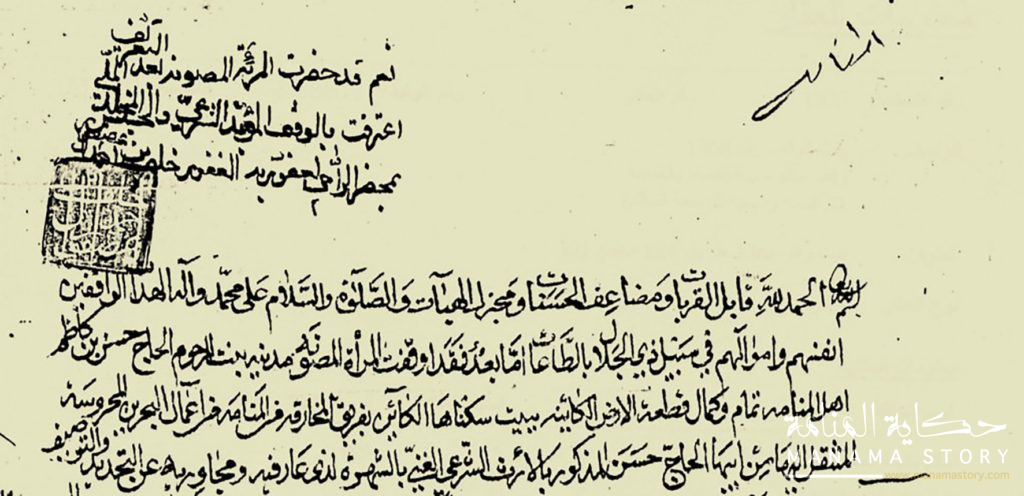 المنامه
نعم قد حضرت المرئة المصونة بعد التعريف
اعترفت بالوقف المؤبد الشرعي والحبس المخلد
بمحضر الراجي لعفو ربه الغفور خلف بن أحمد
بسم الله الحمد لله قابل القربات ومضاعف الحسنات ومجزل الهبات والصلوة والسلام على محمد وآله الهداة الواقفين
انفسهم واموالهم في سبيل ذي الجلال بالطاعات اما بعد فقد اوقفت المرأة المصونة مدينه بنت المرحوم الحاج حسن بن كاظم
اهل المنامه تمام وكمال قطعة الارض الكاينه ببيت سكناها الكائن بفريق المخارقه من المنامه من اعمال البحرين المحروسة
المنتقل اليها من ابيها الحاج حسن المذكور بالارث الشرعي الغني بالشهرة لدى عارفيه ومجاوريه عن التحديد والتوصيف
حكاية المنامة
MANAMA STORY
www.manamastory.com